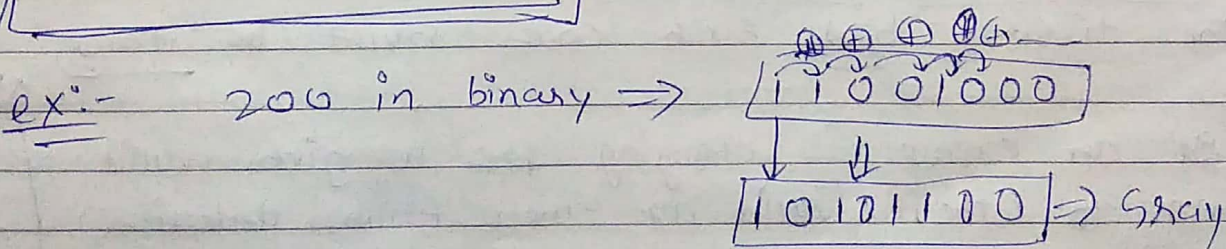 ⊕ ⊕ ⊕ ⊕ ⊕
ex:- 200 in binary ⇒ 11001000
10101100 ⇒ Gray